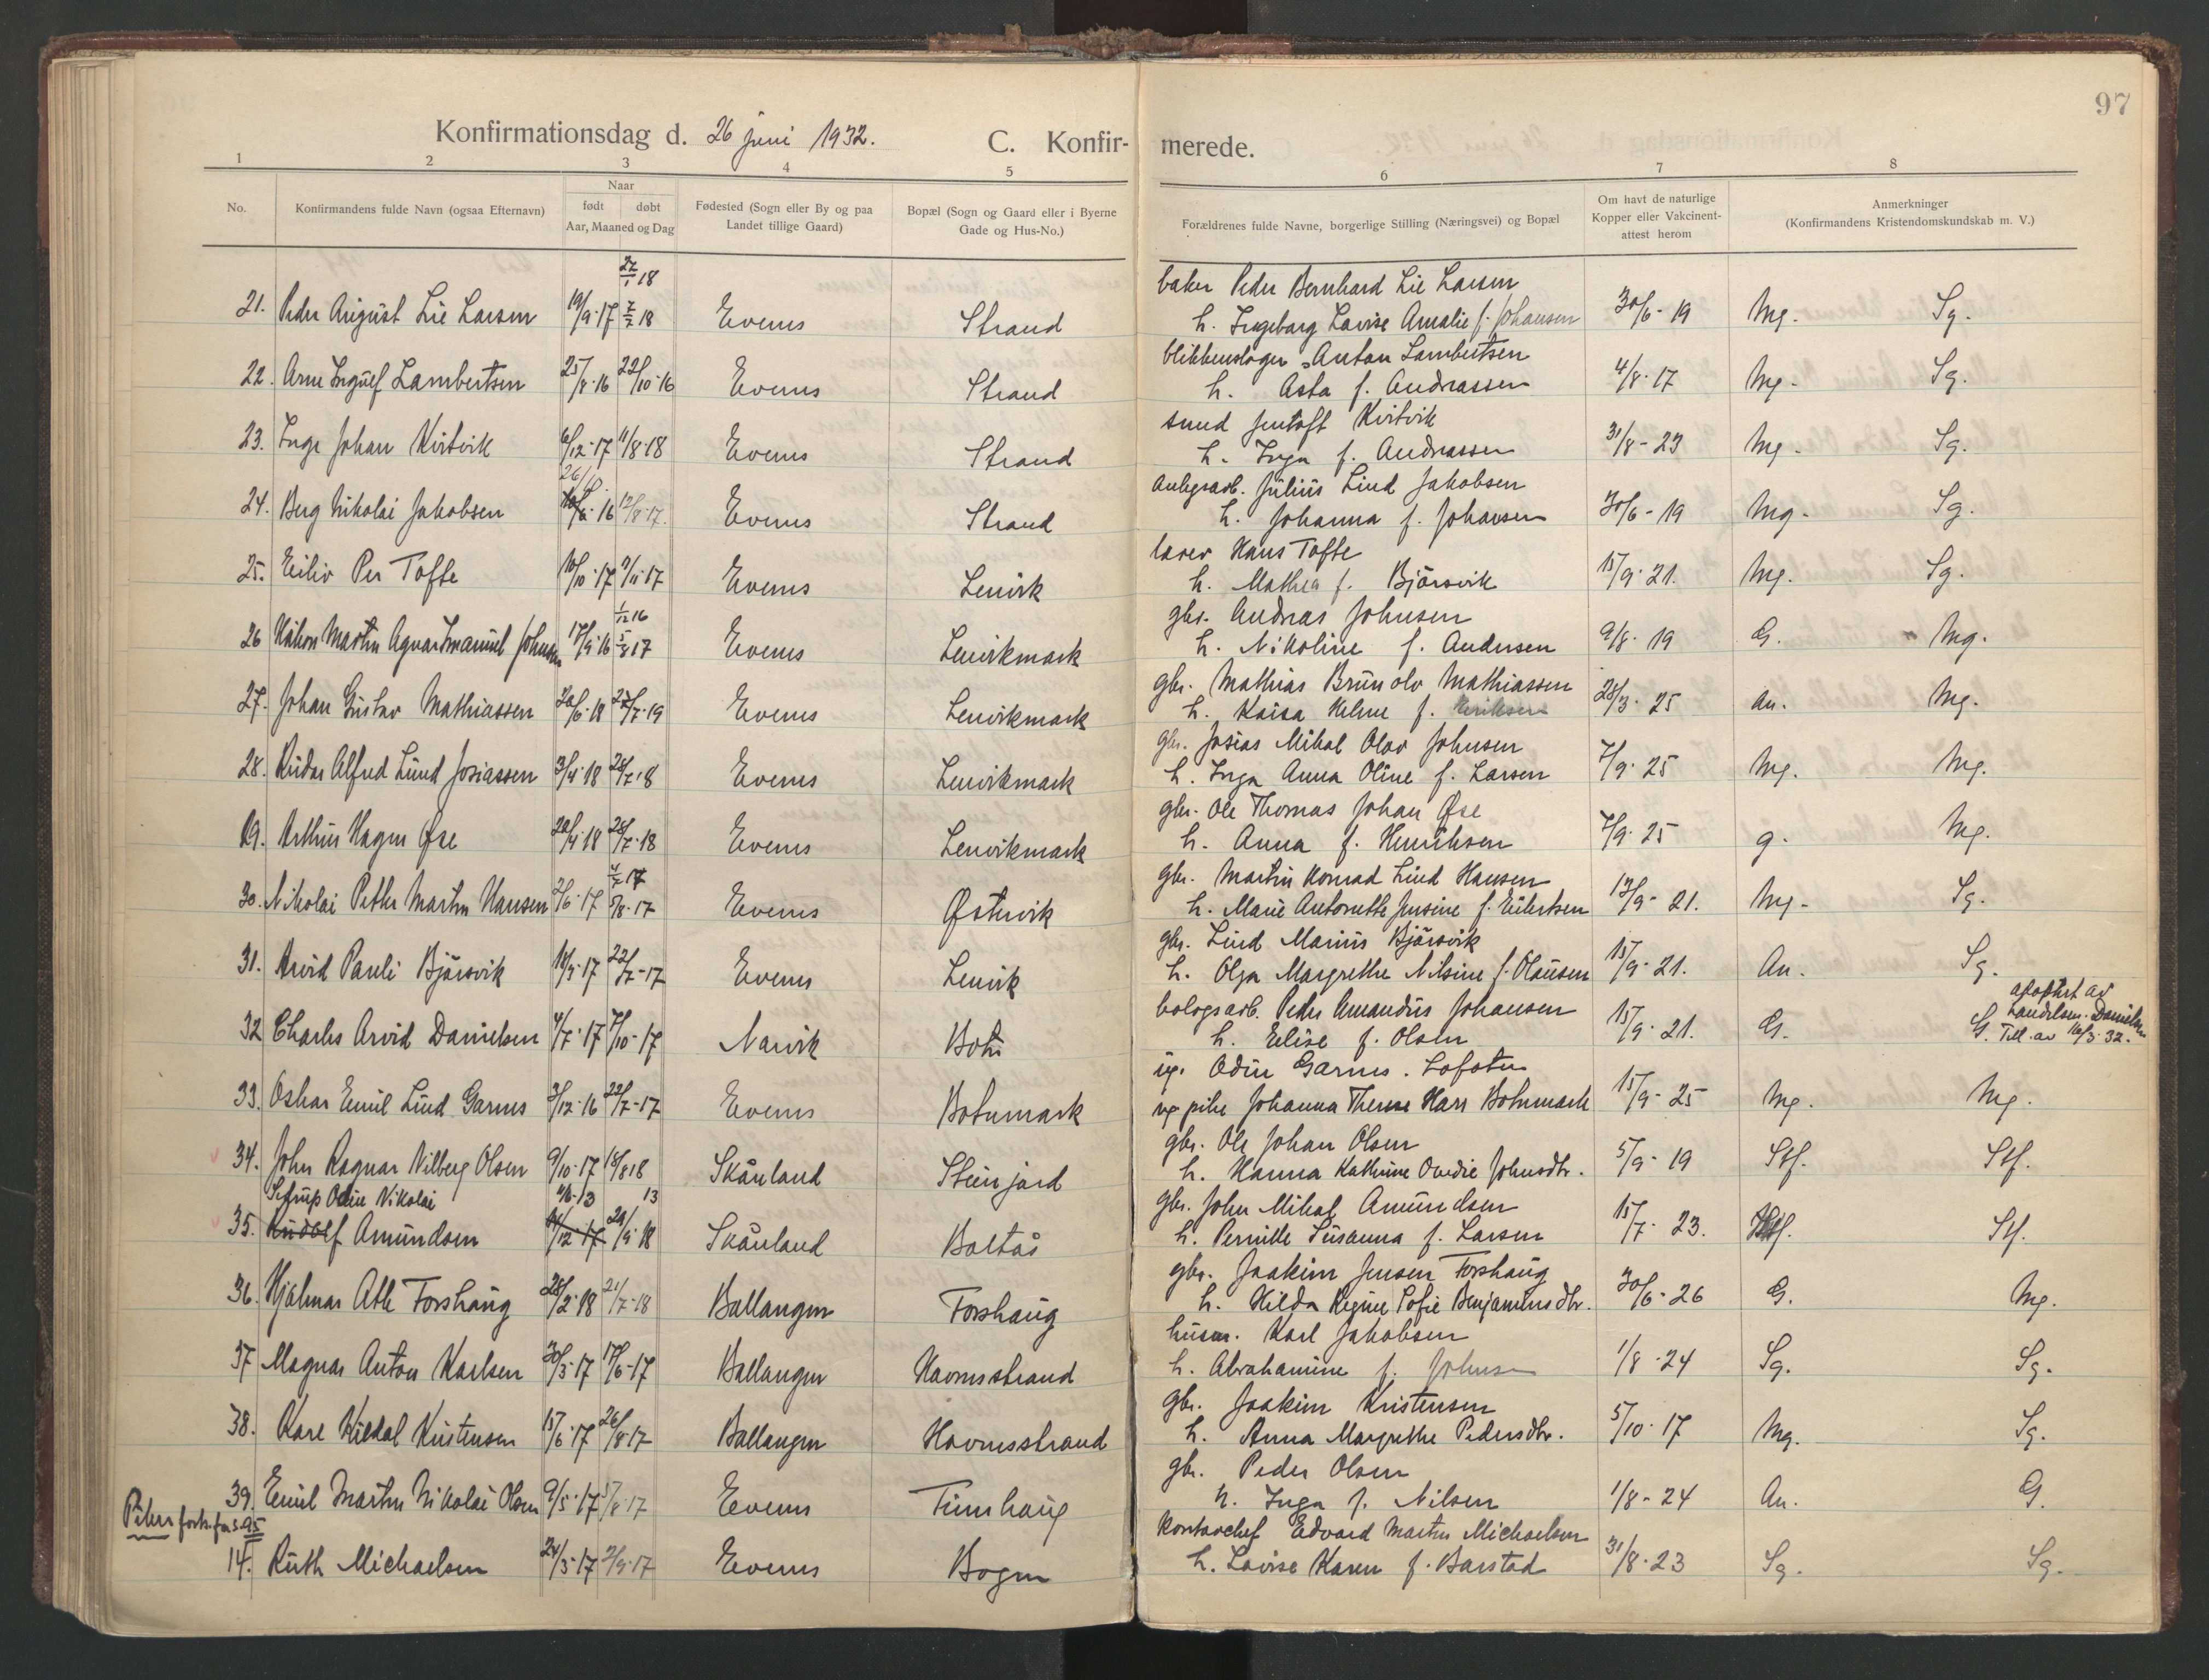 97
Konfirmationsdag d. 26 juni 1932. C. Konfir- merede.
1 2 3 4 5 6 7 8
No.
Konfirmandens fulde Navn (ogsaa Efternavn)
Naar
født døbt
Aar, Maaned og Dag
Fødested (Sogn eller By og paa
Landet tillige Gaard)
Bopæl (Sogn og Gaard eller i Byerne
Gade og Hus-No.)
Forældrenes fulde Navne, borgerlige Stilling (Næringsvei) og Bopæl
Om havt de naturlige
Kopper eller Vakcinent-
attest herom
Anmerkninger
(Konfirmandens Kristendomskundskab m. V.)
27/1 18 baker Peder Bernhard Lie Larsen
21. Peder August Lie Larsen 19/9-17 7/7 18 Evenes Strand h. Ingeborg Lovise Amalie f. Johansen 30/6-19 Mg. Sg.
blikkenslager Anton Lambertsen
22. Arne Ingulf Lambertsen 25/8-16 22/10-16 Evenes Strand h. Asta f. Andreassen 4/8-17 Mg. Sg.
smed Jentoft Kvitvik
23. Inge Johan Kvitvik 6/12-17 11/8-18 Evenes Strand h. Inga f. Andreassen 31/8-23 Mg. Sg.
26/10. anlegsarb. Julius Lind Jakobsen
24. Berg Nikolai Jakobsen 16 12/8-17. Evenes Strand h. Johanna f. Johansen 30/6-19 Mg. Sg.
lærer Hans Tofte
25. Eiliv Per Tofte 10/10-17 11-17 Evenes Lenvik h. Mathea f. Bjørsvik 15/9-21. Mg. Sg.
1/12 16 gbr. Andreas Johnsen
26 Håkon Martin Agnar Imanuel Johnsen 17/9-16 5/8 17 Evenes Lenvikmark h. Nikoline f. Andersen 9/8-19 G. Mg.
gbr. Mathias Brunolv Mathiassen
27. Johan Gustav Mathiassen 20/6-18 27/7-19 Evenes Lenvikmark h. Kaisa Helene f. Henriksen 28/3-25 An. Mg.
gbr. Josias Mikal Olav Johnsen
28. Reidar Alfred Lund Josiassen 3/4-18 28/7-18 Evenes Lenvikmark h. Inga Anna Oline f. Larsen 7/9-25 Mg. Mg.
gbr. Ole Thomas Johan Øse
29. Arthur Hagen Øse 20/4-18 28/7-18 Evenes Lenvikmark h. Anna f. Henriksen 7/9-25 g. Mg.
17 gbr. Martin Konrad Lind Hansen
30. Nikolai Petter Martin Hansen 2/6-17 5/8-17 Evenes Østervik h. Marie Antonette Jensine f. Eilertsen 13/9-21. Mg. Sg.
gbr. Lind Marius Bjørsvik
31. Arvid Pauli Bjørsvik 18/5-17 22/7-17 Evenes Lenvik h. Olga Margrethe Nilsine f. Olausen 15/9-21. An. Sg.
bologsarb. Peder Amandus Johansen adoptert av
32 Charles Arvid Danielsen 4/7-17 7/10-17 Narvik Botn h. Elise f. Olsen 15/9-21. G. G. Landelsm. Danielsen
Till. av 16/3-32.
ug. Odin Garnes. Lofoten
33. Oskar Emil Lind Garnes 3/12-16 22/7-17 Evenes Botnmark ug pike Johanna Therese Hars Botnmark 15/9-25 Mg. Mg.
gbr. Ole Johan Olsen
34. John Ragnar Nilberg Olsen 9/10-17 18/8 18 Skånland Steinjord h. Hanna Kathrine Ovedie Johnsdtr. 5/9-19 Stf. Stf.
Sefrup Odin Nikolai 4/6-13 13 gbr. John Mikal Amundsen
35. Rudolf Amundsen 12-17 29/9-18 Skånland Boltås h. Pernille Susanna f. Larsen 15/7-23. Stf. Stf.
gbr. Joakim Jensen Forshaug
36. Hjalmar Atle Forshaug 28/2-18 21/7-18 Ballangen Forshaug h. Hilda Regine Sofie Benjaminsdtr. 30/6-26 G. Mg.
husm. Karl Jakobsen
37 Magnar Anton Karlsen 30/3-17 17/6-17 Ballangen Havnnsstrand h. Abrahamine f. Johnsen 1/8-24 Sg. Sg.
gbr. Joakim Kristensen
38. Kare Kildal Kristensen 15/6-17 26/8-17 Ballangen Havnnsstrand h. Anna Margrethe Pedersdtr. 5/10-17 Mg. Sg.
gbr. Peder Olsen
39. Emil Martin Nikolai Olsen 9/5-17 5/8-17 Evenes Tunnhaug h. Inga f. Nilsen 1/8-24 An. G.
Piker forts. fra s. 95 kontorchef Edvard Martin Michaelsen
14. Ruth Michaelsen 24/3-17 2/9-17 Evenes Bogen h. Lovise Karen f. Barstad 31/8-23 Sg. Sg.